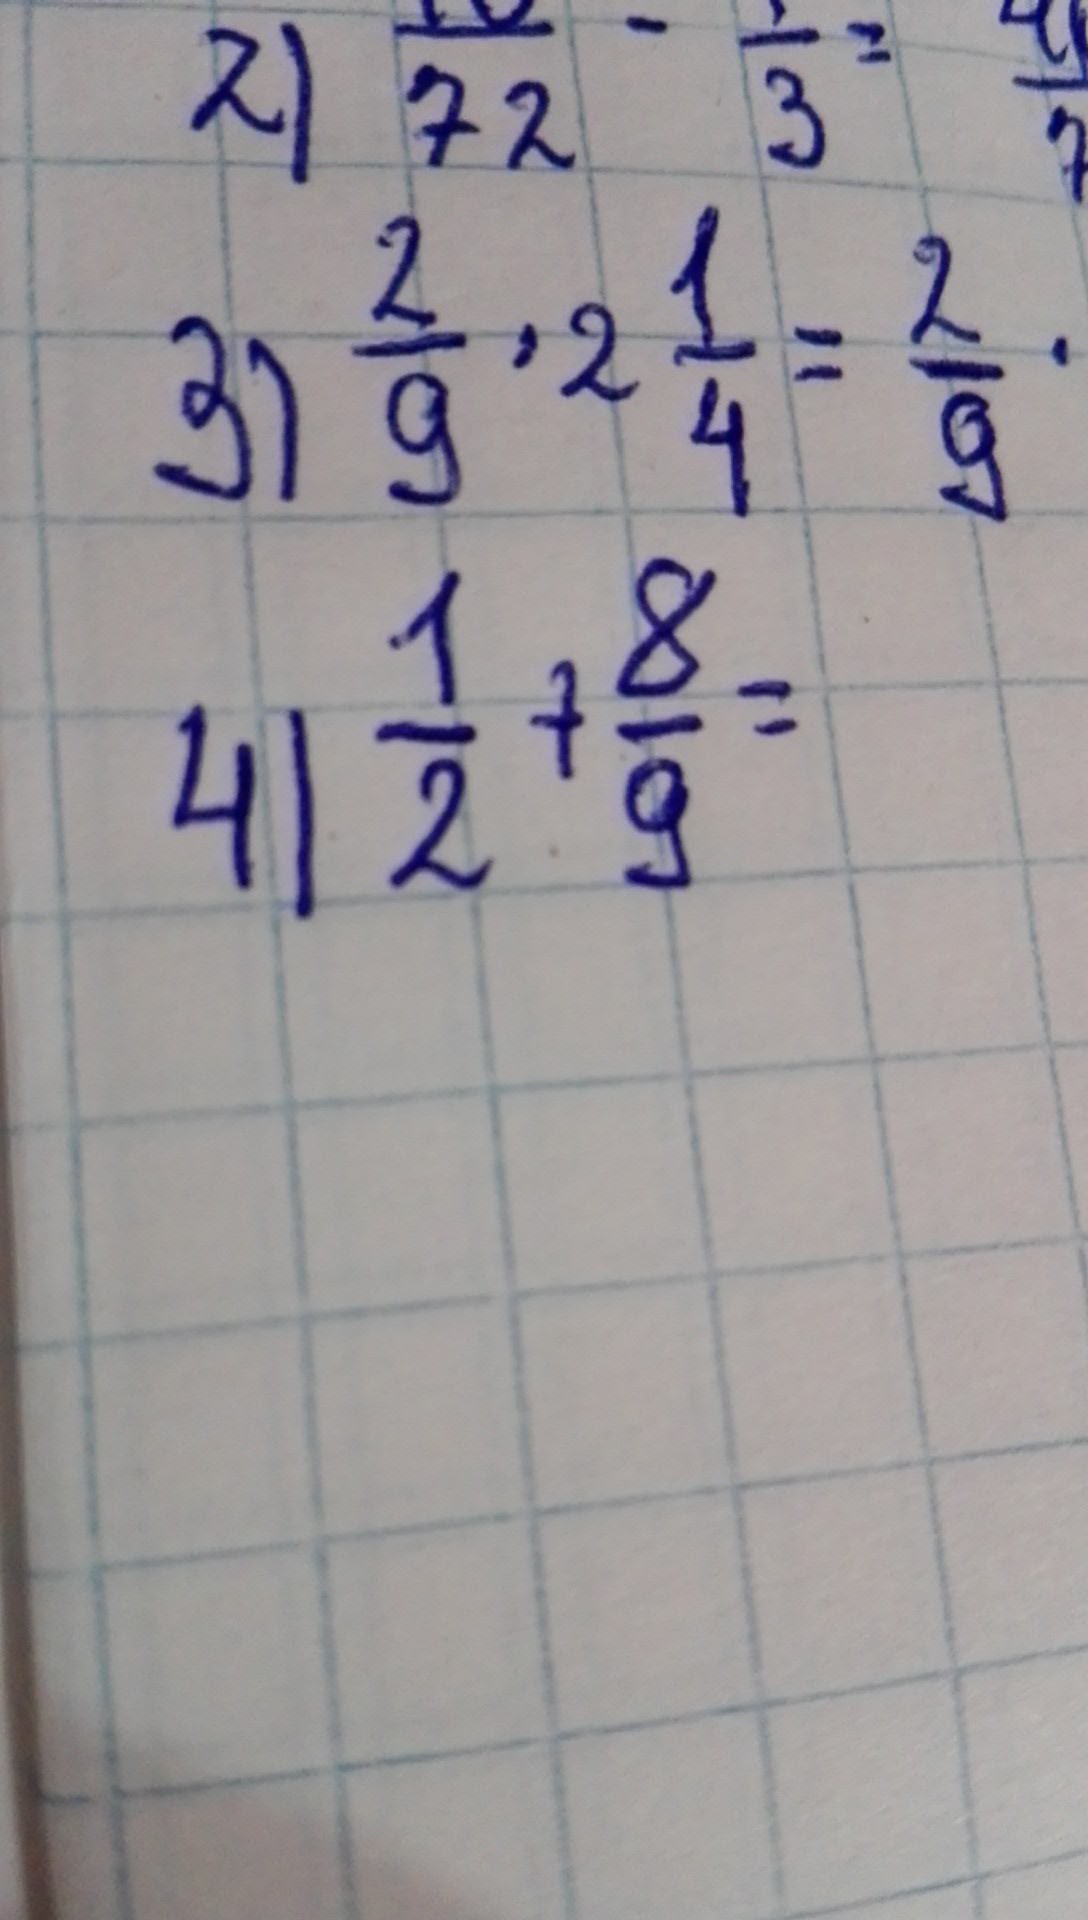 2) /72 - /3 =
3) 2/9 · 2 1/4 = 2/9 ·
4) 1/2 + 8/9 =